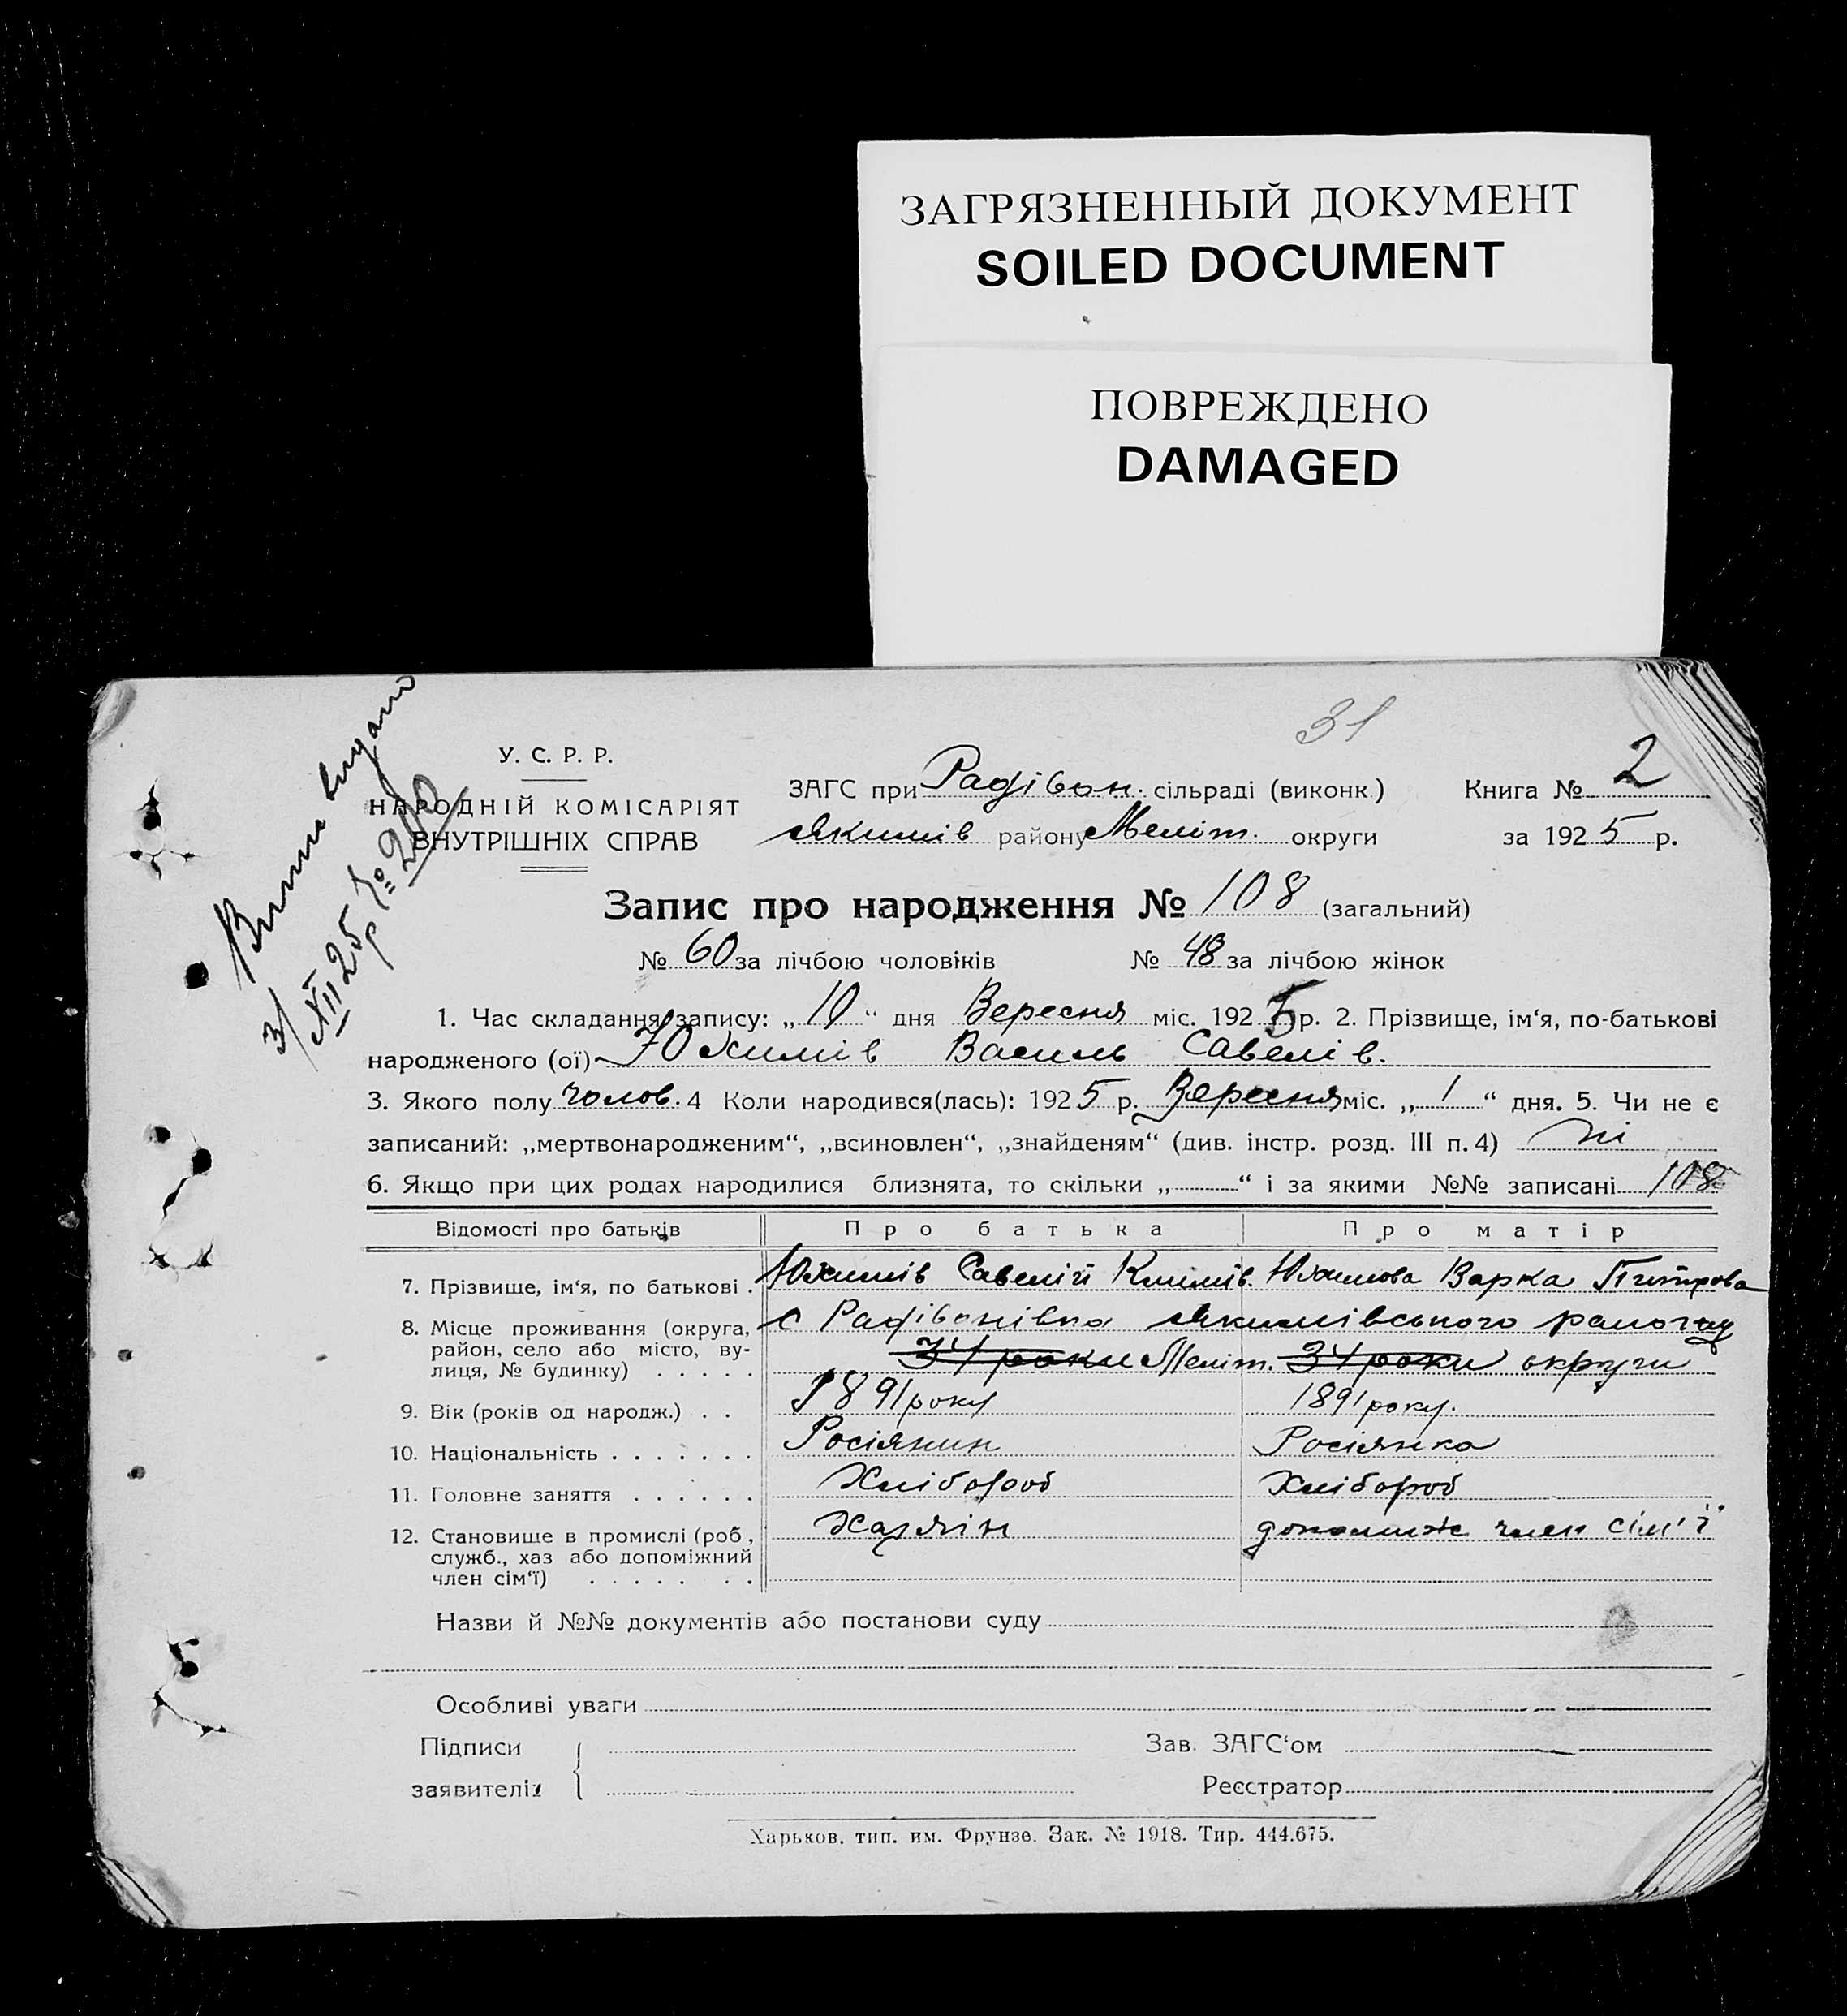 ЗАГРЯЗНЕННЫЙ ДОКУМЕНТ
SOILED DOCUMENT
ПОВРЕЖДЕНО
DAMAGED
31
У. С. Р. Р.
НАРОДНІЙ КОМІСАРІЯТ
ВНУТРІШНІХ СПРАВ
ЗАГС при Радівон. сільраді (виконк.) Книга № 2
Якимів району Меліт. округи за 1925 р.
3/XII 25р № 200
Запис про народження № 108 (загальний)
№ 60 за лічбою чоловіків № 48 за лічбою жінок
1. Час складання запису: „ 10 “ дня Вересня міс. 1925 р. 2. Прізвище, ім‘я, по-батькові
народженого (ої) Юхимів Василь Савелів.
3. Якого полу чолов. 4 Коли народився(лась): 1925 р. Вересня міс. „ 1 “ дня. 5. Чи не є
записаний: „мертвонародженим“, „всиновлен“, „знайденям“ (див. інстр. розд. III п. 4) ні
6. Якщо при цих родах народилися близнята, то скільки „ “ і за якими №№ записані 108
Відомості про батьків Про батька Про матір
7. Прізвище, ім‘я, по батькові . Юхимів Савелій Климів. Юхимова Варка Питрова
8. Місце проживання (округа, с Радівонівка Якимівського району
район, село або місто, ву- 34 роки Меліт. 34 роки округи
лиця, № будинку) . . . . .
9. Вік (років од народж.) . . 1891 року 1891 року.
10. Національність . . . . . . . Росіянин Росіянка
11. Головне заняття . . . . . . Хлібороб Хлібороб
12. Становище в промислі (роб., Хазяін допоміж член сім'ї
служб., хаз або допоміжний
член сім‘ї) . . . . . . .
Назви й №№ документів або постанови суду
Особливі уваги
Підписи Зав. ЗАГС‘ом
заявителів Реєстратор
Харьков. тип. им. Фрунзе. Зак. № 1918. Тир. 444.675.